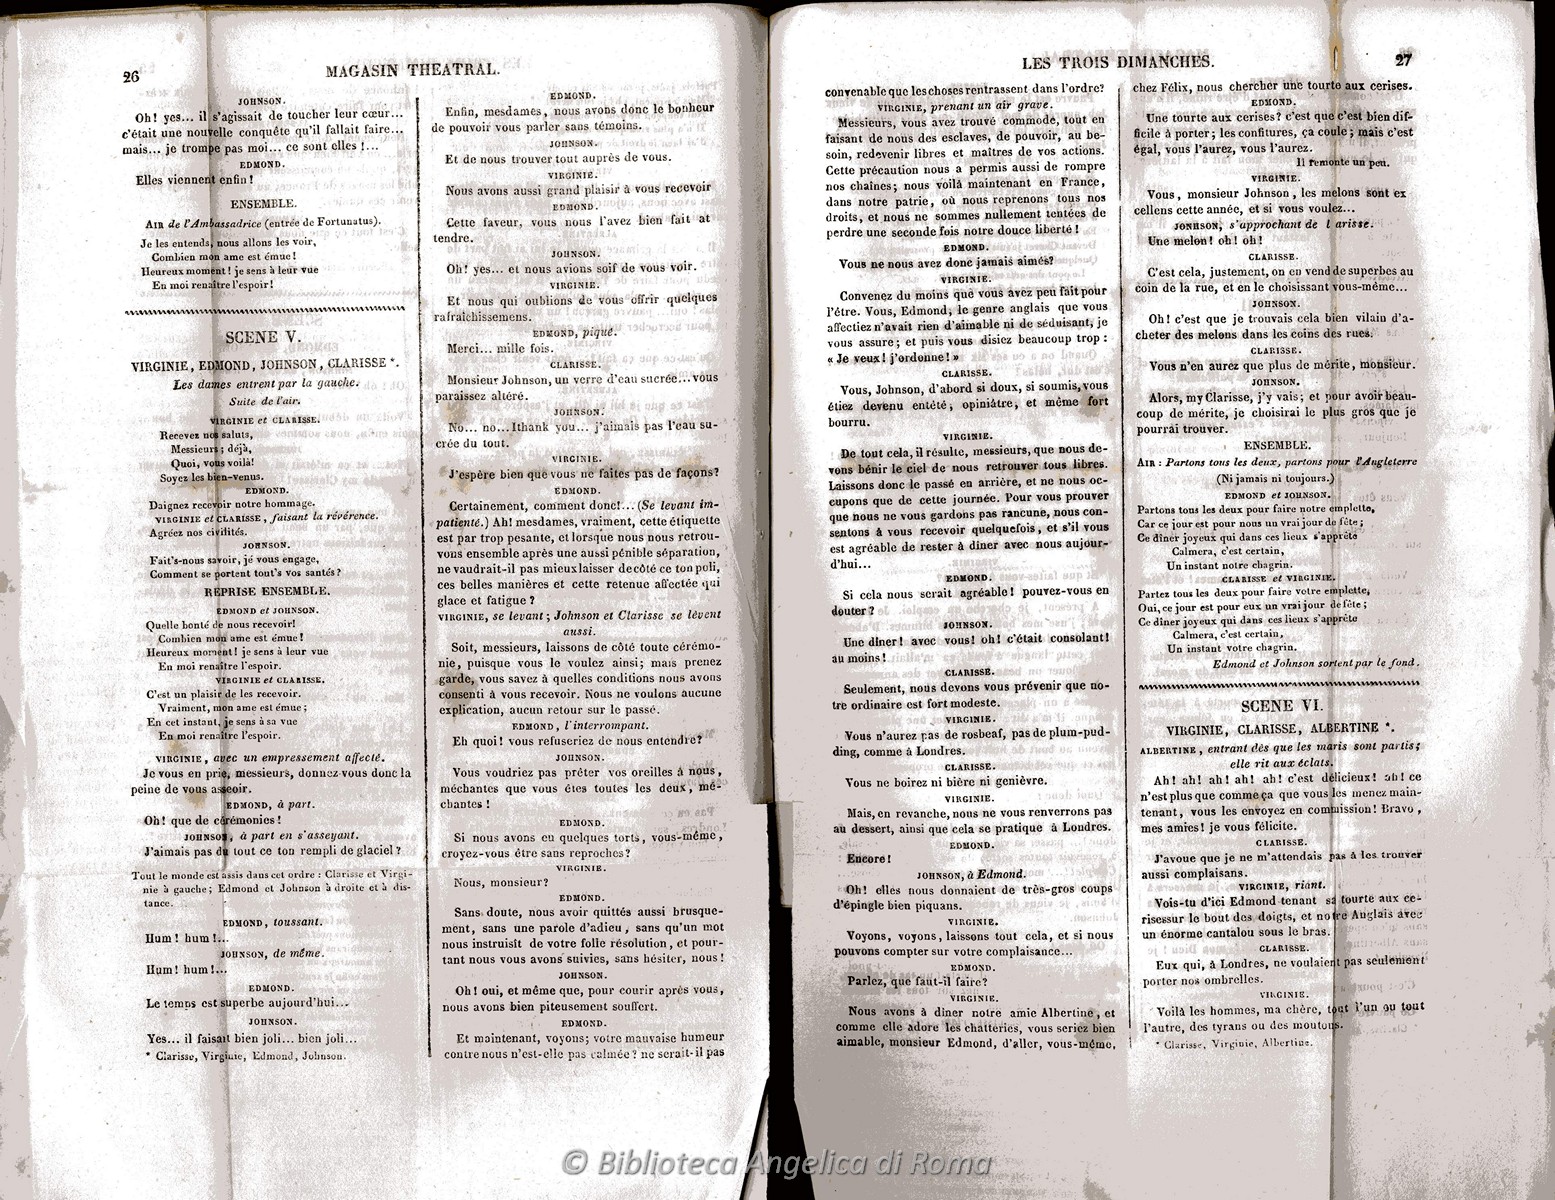 26
MAGASIN THEATRAL.
JOHNSON.
Oh! yes... il s'agissait de toucher leur cœur...
c'était une nouvelle conquête qu'il fallait faire...
mais... je trompe pas moi... ce sont elles !...
EDMOND.
Elles viennent enfin!
ENSEMBLE.
AIR de l'Ambassadrice (entrée de Fortunatus).
Je les entends, nous allons les voir,
Combien mon ame est émue!
Heureux moment! je sens à leur vue
En moi renaître l'espoir!
SCENE V.
VIRGINIE, EDMOND, JOHNSON, CLARISSE *.
Les dames entrent par la gauche.
Suite de l'air.
VIRGINIE et CLARISSE.
Recevez nos saluts,
Messieurs; déjà,
Quoi, vous voilà!
Soyez les bien-venus.
EDMOND.
Daignez recevoir notre hommage.
VIRGINIE et CLARISSE, faisant la révérence.
Agréez nos civilités.
JOHNSON.
Fait's-nous savoir, je vous engage,
Comment se portent tout's vos santés?
REPRISE ENSEMBLE.
EDMOND et JOHNSON.
Quelle bonté de nous recevoir!
Combien mon ame est émue!
Heureux moment! je sens à leur vue
En moi renaître l'espoir.
VIRGINIE et CLARISSE.
C'est un plaisir de les recevoir.
Vraiment, mon ame est émue;
En cet instant, je sens à sa vue
En moi renaître l'espoir.
VIRGINIE, avec un empressement affecté.
Je vous en prie, messieurs, donnez-vous donc la
peine de vous asseoir.
EDMOND, à part.
Oh! que de cérémonies!
JOHNSON, à part en s'asseyant.
J'aimais pas du tout ce ton rempli de glaciel?
Tout le monde est assis dans cet ordre: Clarisse et Virgi-
nie à gauche; Edmond et Johnson à droite et à dis-
tance.
EDMOND, toussant.
Hum! hum!...
JOHNSON, de même.
Hum! hum!...
EDMOND.
Le temps est superbe aujourd'hui...
JOHNSON.
Yes... il faisait bien joli... bien joli...
* Clarisse, Virginie, Edmond, Johnson.
EDMOND.
Enfin, mesdames, nous avons donc le bonheur
de pouvoir vous parler sans témoins.
JOHNSON.
Et de nous trouver tout auprès de vous.
VIRGINIE.
Nous avons aussi grand plaisir à vous recevoir
EDMOND.
Cette faveur, vous nous l'avez bien fait at
tendre.
JOHNSON.
Oh! yes... et nous avions soif de vous voir.
VIRGINIE.
Et nous qui oublions de vous offrir quelques
rafraîchissemens.
EDMOND, piqué.
Merci... mille fois.
CLARISSE.
Monsieur Johnson, un verre d'eau sucrée... vous
paraissez altéré.
JOHNSON.
No... no... I thank you... j'aimais pas l'eau su-
crée du tout.
VIRGINIE.
J'espère bien que vous ne faites pas de façons?
EDMOND.
Certainement, comment donc!... (Se levant im-
patienté.) Ah! mesdames, vraiment, cette étiquette
est par trop pesante, et lorsque nous nous retrou-
vons ensemble après une aussi pénible séparation,
ne vaudrait-il pas mieux laisser de côté ce ton poli,
ces belles manières et cette retenue affectée qui
glace et fatigue?
VIRGINIE, se levant; Johnson et Clarisse se lèvent
aussi.
Soit, messieurs, laissons de côté toute cérémo-
nie, puisque vous le voulez ainsi; mais prenez
garde, vous savez à quelles conditions nous avons
consenti à vous recevoir. Nous ne voulons aucune
explication, aucun retour sur le passé.
EDMOND, l'interrompant.
Eh quoi! vous refuseriez de nous entendre?
JOHNSON.
Vous voudriez pas prêter vos oreilles à nous,
méchantes que vous êtes toutes les deux, mé-
chantes!
EDMOND.
Si nous avons eu quelques torts, vous-même,
croyez-vous être sans reproches?
VIRGINIE.
Nous, monsieur?
EDMOND.
Sans doute, nous avoir quittés aussi brusque-
ment, sans une parole d'adieu, sans qu'un mot
nous instruisît de votre folle résolution, et pour-
tant nous vous avons suivies, sans hésiter, nous!
JOHNSON.
Oh! oui, et même que, pour courir après vous,
nous avons bien piteusement souffert.
EDMOND.
Et maintenant, voyons; votre mauvaise humeur
contre nous n'est-elle pas calmée? ne serait-il pas
LES TROIS DIMANCHES.
27
convenable que les choses rentrassent dans l'ordre?
VIRGINIE, prenant un air grave.
Messieurs, vous avez trouvé commode, tout en
faisant de nous des esclaves, de pouvoir, au be-
soin, redevenir libres et maîtres de vos actions.
Cette précaution nous a permis aussi de rompre
nos chaînes; nous voilà maintenant en France,
dans notre patrie, où nous reprenons tous nos
droits, et nous ne sommes nullement tentées de
perdre une seconde fois notre douce liberté!
EDMOND.
Vous ne nous avez donc jamais aimés?
VIRGINIE.
Convenez du moins que vous avez peu fait pour
l'être. Vous, Edmond, le genre anglais que vous
affectiez n'avait rien d'aimable ni de séduisant, je
vous assure; et puis vous disiez beaucoup trop:
« Je veux! j'ordonne! »
CLARISSE.
Vous, Johnson, d'abord si doux, si soumis, vous
étiez devenu entêté, opiniâtre, et même fort
bourru.
VIRGINIE.
De tout cela, il résulte, messieurs, que nous de-
vons bénir le ciel de nous retrouver tous libres.
Laissons donc le passé en arrière, et ne nous oc-
cupons que de cette journée. Pour vous prouver
que nous ne vous gardons pas rancune, nous con-
sentons à vous recevoir quelquefois, et s'il vous
est agréable de rester à diner avec nous aujour-
d'hui...
EDMOND.
Si cela nous serait agréable! pouvez-vous en
douter?
JOHNSON.
Une diner! avec vous! oh! c'était consolant!
au moins!
CLARISSE.
Seulement, nous devons vous prévenir que no-
tre ordinaire est fort modeste.
VIRGINIE.
Vous n'aurez pas de rosbeaf, pas de plum-pud-
ding, comme à Londres.
CLARISSE.
Vous ne boirez ni bière ni genièvre.
VIRGINIE.
Mais, en revanche, nous ne vous renverrons pas
au dessert, ainsi que cela se pratique à Londres.
EDMOND.
Encore!
JOHNSON, à Edmond.
Oh! elles nous donnaient de très-gros coups
d'épingle bien piquans.
VIRGINIE.
Voyons, voyons, laissons tout cela, et si nous
pouvons compter sur votre complaisance...
EDMOND.
Parlez, que faut-il faire?
VIRGINIE.
Nous avons à diner notre amie Albertine, et
comme elle adore les chatteries, vous seriez bien
aimable, monsieur Edmond, d'aller, vous-même,
chez Félix, nous chercher une tourte aux cerises.
EDMOND.
Une tourte aux cerises? c'est que c'est bien dif-
ficile à porter; les confitures, ça coule; mais c'est
égal, vous l'aurez, vous l'aurez.
Il remonte un peu.
VIRGINIE.
Vous, monsieur Johnson, les melons sont ex
cellens cette année, et si vous voulez...
JONHSON, s'approchant de l arisse.
Une melon! oh! oh!
CLARISSE.
C'est cela, justement, on en vend de superbes au
coin de la rue, et en le choisissant vous-même...
JOHNSON.
Oh! c'est que je trouvais cela bien vilain d'a-
cheter des melons dans les coins des rues.
CLARISSE.
Vous n'en aurez que plus de mérite, monsieur.
JOHNSON.
Alors, my Clarisse, j'y vais; et pour avoir beau-
coup de mérite, je choisirai le plus gros que je
pourrai trouver.
ENSEMBLE.
AIR: Partons tous les deux, partons pour l'Angleterre
(Ni jamais ni toujours.)
EDMOND et JOHNSON.
Partons tous les deux pour faire notre emplette,
Car ce jour est pour nous un vrai jour de fête;
Ce dîner joyeux qui dans ces lieux s'apprête
Calmera, c'est certain,
Un instant notre chagrin.
CLARISSE et VIRGINIE.
Partez tous les deux pour faire votre emplette,
Oui, ce jour est pour eux un vrai jour de fête;
Ce dîner joyeux qui dans ces lieux s'apprête
Calmera, c'est certain,
Un instant votre chagrin.
Edmond et Johnson sortent par le fond.
SCENE VI.
VIRGINIE, CLARISSE, ALBERTINE *.
ALBERTINE, entrant dès que les maris sont partis;
elle rit aux éclats.
Ah! ah! ah! ah! ah! c'est délicieux! ah! ce
n'est plus que comme ça que vous les menez main-
tenant, vous les envoyez en commission! Bravo,
mes amies! je vous félicite.
CLARISSE.
J'avoue que je ne m'attendais pas à les trouver
aussi complaisans.
VIRGINIE, riant.
Vois-tu d'ici Edmond tenant sa tourte aux ce-
risessur le bout des doigts, et notre Anglais avec
un énorme cantalou sous le bras.
CLARISSE.
Eux qui, à Londres, ne voulaient pas seulement
porter nos ombrelles.
VIRGINIE.
Voilà les hommes, ma chère, tout l'un ou tout
l'autre, des tyrans ou des moutons.
* Clarisse, Virginie, Albertine.
© Biblioteca Angelica di Roma